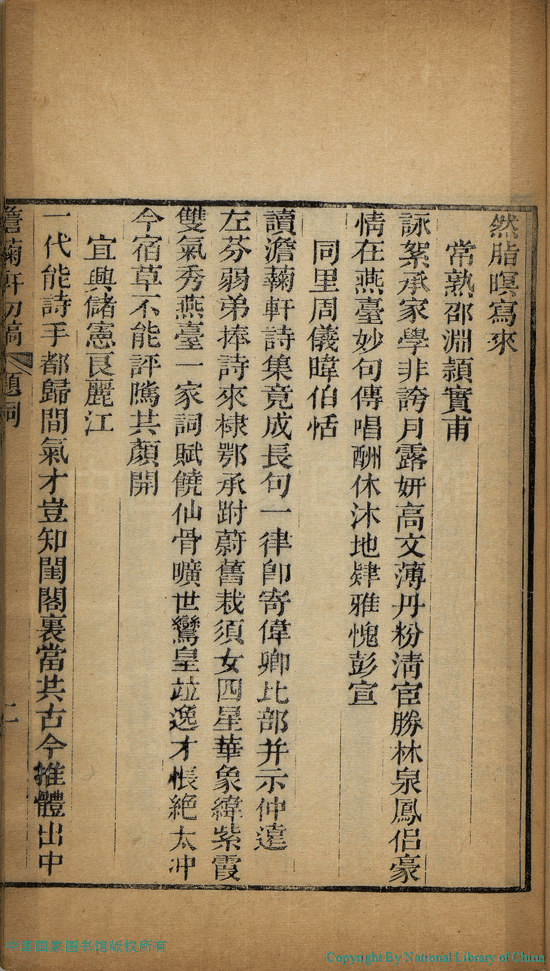 然脂暝寫來
常熟邵淵頴實甫
詠絮承家學非誇月露妍高文薄丹粉清宦勝林泉鳳侣豪
情在燕臺妙句傳唱酬休沐地肄雅愧彭宣
同里周儀暐伯恬
讀澹蘜軒詩集竟成長句一律卽寄偉卿比部并示仲遠
左芬弱弟捧詩來棣鄂承跗蔚舊栽須女四星華象緯紫霞
雙氣秀燕臺一家詞賦饒仙骨曠世鸞皇竝逸才悵絶太冲
今宿草不能評隲其顏開
宜興儲憲良麗江
一代能詩手都歸間氣才豈知閨閣裏當共古今推體出中
澹蘜軒初稿
題詞
二
中國國家图书馆版权所有
Copyright By National Library of China